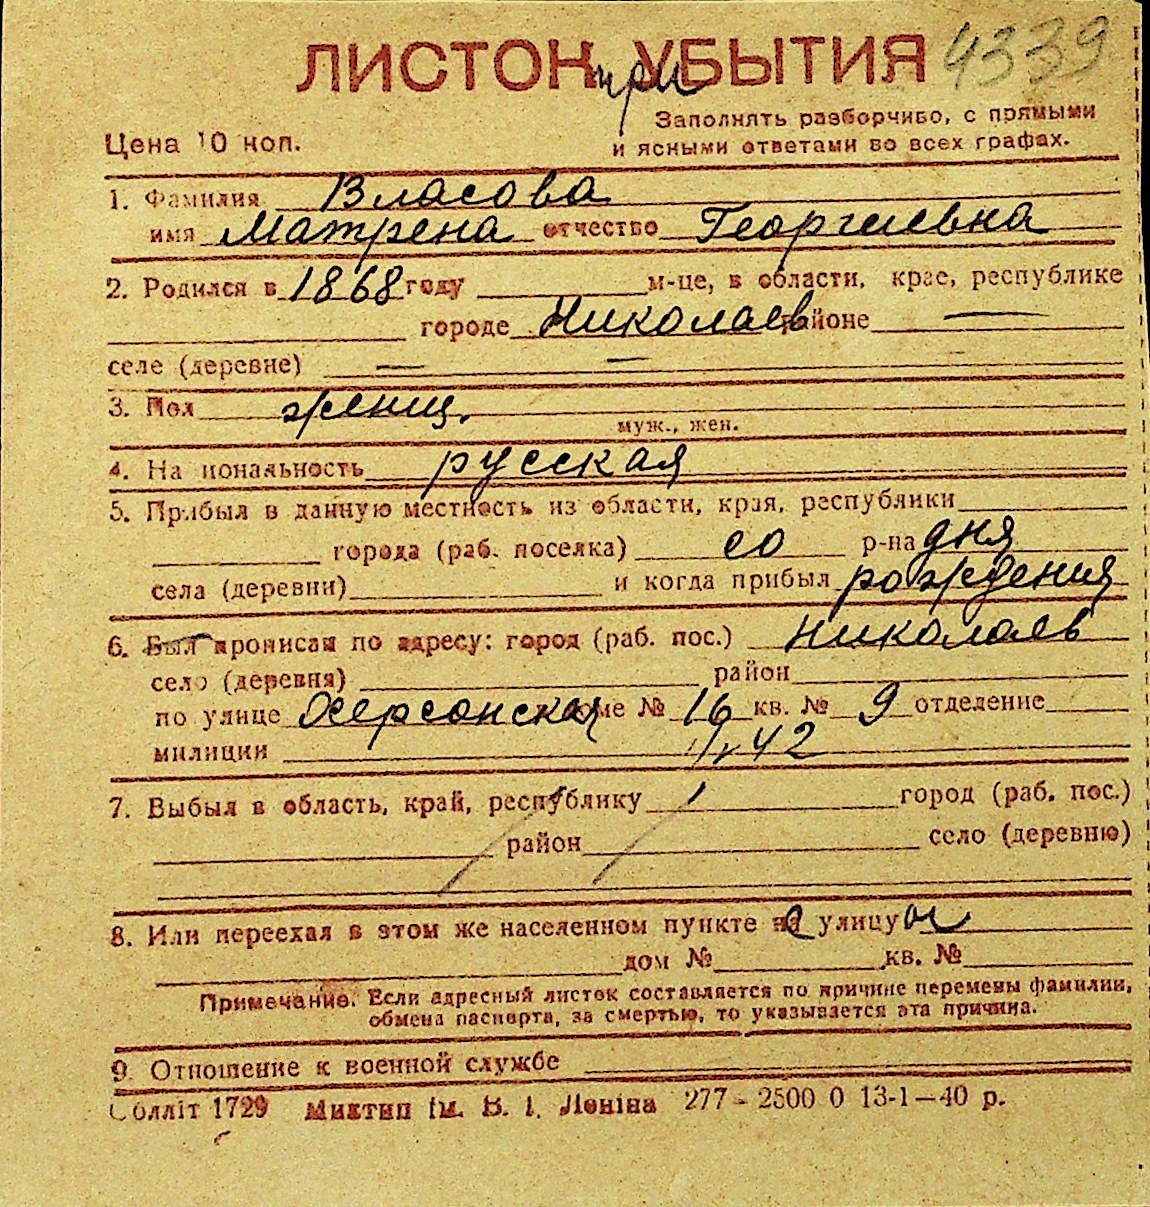 ЛИСТОК УБЫТИЯ 4339
при
Заполнять разборчиво, с прямыми
Цена 10 коп. и ясными ответами во всех графах.
1. Фамилия Власова
имя Матрена отчество Георгиевна
2. Родился в 1868 году м-це, в области, крае, республике
городе Николаев районе —
селе (деревне) — —
3. Пол женщ.
муж., жен.
4. На иональность русская
5. Прибыл в данную местность из области, края, республики
города (раб. поселка) со р-на дня
села (деревни) и когда прибыл рождения
6. Был прописан по адресу: город (раб. пос.) Николаев
село (деревня) район
по улице Херсонская доме № 16 кв. № 9 отделение
милиции 42
7. Выбыл в область, край, республику город (раб. пос.)
район село (деревню)
8. Или переехал в этом же населенном пункте на улицу
дом № кв. №
Примечание. Если адресный листок составляется по причине перемены фамилии,
обмена паспорта, за смертью, то указывается эта причина.
9. Отношение к военной службе
Обллiт 1729 Миктип iм. В. I. Ленiна 277 - 2500 0 13-1—40 р.